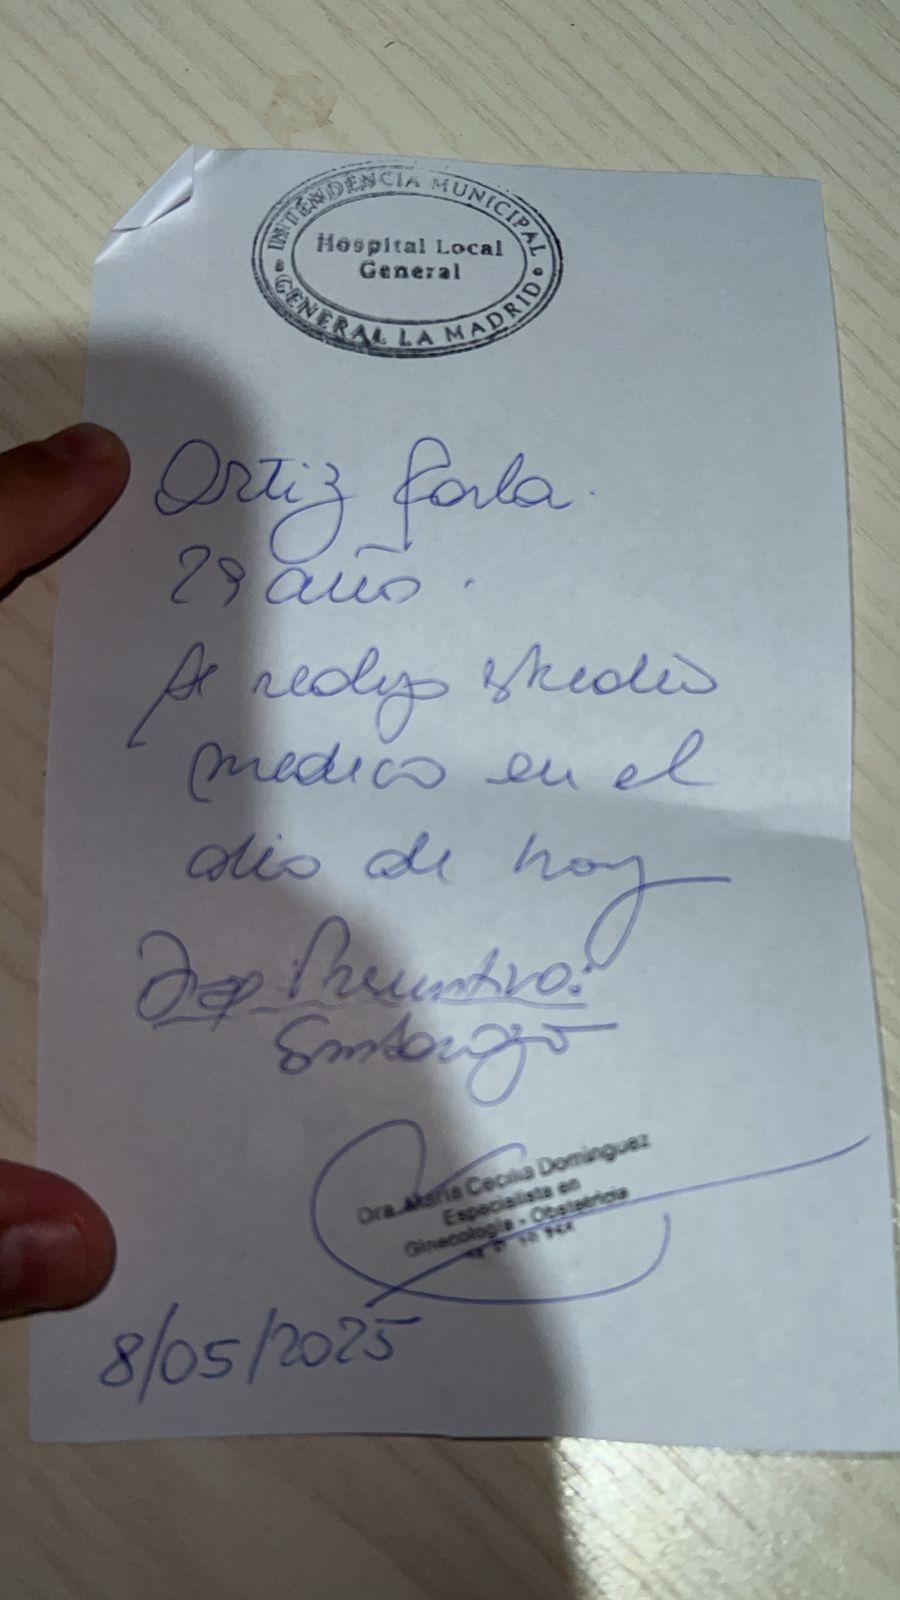 INTENDENCIA MUNICIPAL
Hospital Local
General
GENERAL LA MADRID
Ortiz Karla.
29 año.
Se realizo estudio
medico en el
dia de hoy
Diag. Presuntivo:
Embarazo
Dra. Maria Cecilia Dominguez
Especialista en
Ginecología - Obstetricia
8/05/2025